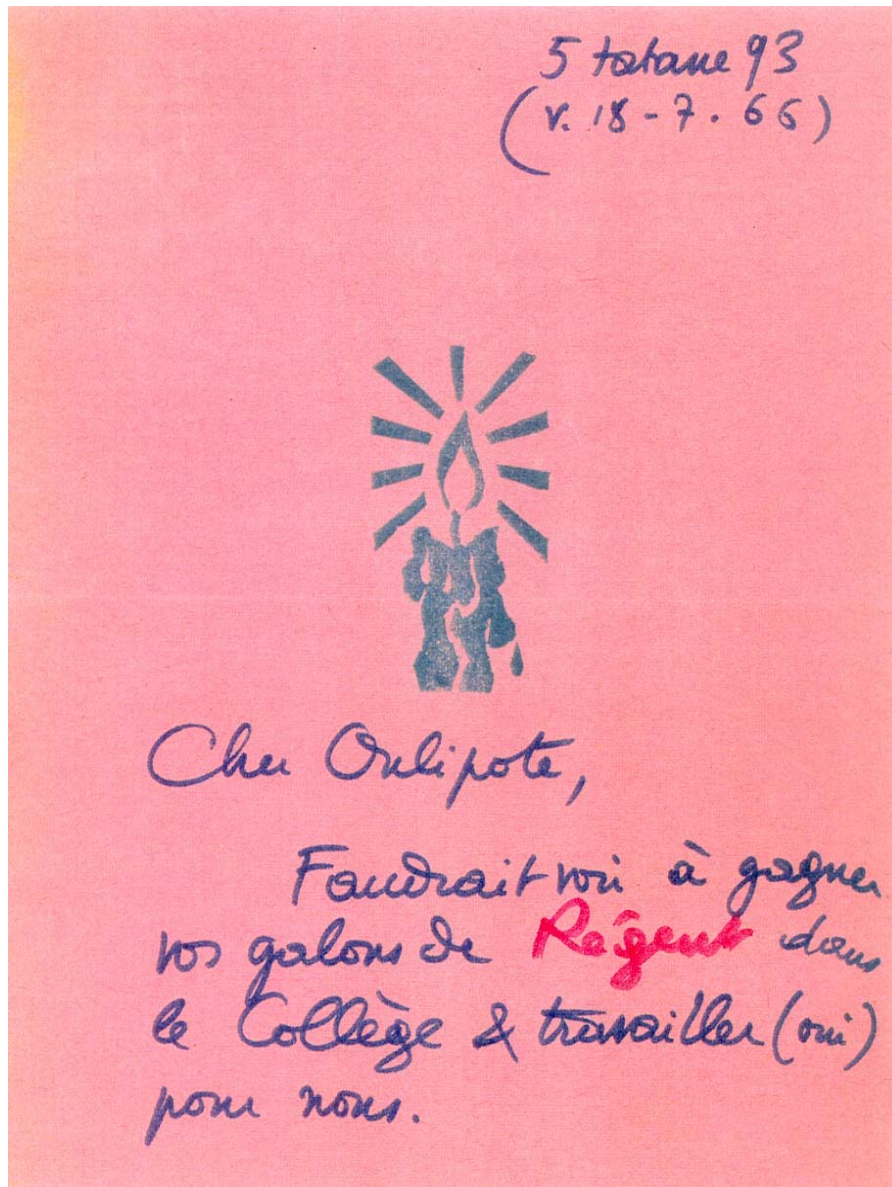 5 tatane 93
(v. 18-7.66)
Cher Oulipote,
Faudrait voir à gagner
vos galons de Régent dans
le Collège & travailler (oui)
pour nous.